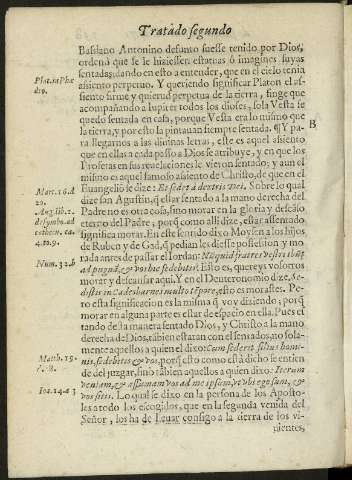 Tratado segundo
Basilano Antonino defunto fuesse tenido por Dios,
ordenò que se le hiziessen estatuas ò imagines suyas
sentadas, dando en esto a entender, que en el cielo tenia
assiento perpetuo. Y queriendo significar Platon el as-
siento firme y quietud perpetua de la tierra, finge que
acompañando a Iupiter todos los dioses, sola Vesta se
quedò sentada en casa, porque Vesta era lo mismo que
la tierra, y por esto la pintauan siempre sentada. ¶ Y pa-
ra llegarnos a las diuinas letras, este es aquel assiento
que en ellas a cada passo a Dios se atribuye, y en que los
Profetas en sus reuelaciones le vieron sentado; y aun el
mismo es aquel famoso assiento de Christo, de que en el
Euangelio se dize: Et sedet à dextris Dei. Sobre lo qual
dize san Agustin, q estar sentado a la mano derecha del
Padre no es otra cosa, sino morar en la gloria y descãso
eterno del Padre, porq como alli dize, estar assentado
significa morar. En este sentido dixo Moysen a los hijos
de Ruben y de Gad, q pedian les diesse possession y mo-
rada antes de passar el Iordan: Nũquid fratres vestri ibũt
ad pugnã, & vos hic sedebitis? Esto es, quereys vosotros
morar y descansar aqui. Y en el Deuteronomio dize, Se-
distis in Cadesbarne multo tẽpore, esto es morastes. Pe-
ro esta significacion es la misma q voy diziendo; porq
morar en alguna parte es estar de espacio en ella. Pues es
tando desta manera sentado Dios, y Christo a la mano
derecha de Dios, tãbien estaràn con el sentados, no sola-
mente aquellos a quien el dixo: Cum sederit filius homi-
nis, sedebitis & vos, porq esto como està dicho se entien
de del juzgar, sino tãbien aquellos a quien dixo: Iterum
veniam, & assumam vos ad me ipsum, vt vbi ego sum, &
vos sitis. Lo qual se dixo en la persona de los Aposto-
les a todo los escogidos, que en la segunda venida del
Señor, los ha de lleuar consigo a la tierra de los vi-
uientes,
Plat. in Phæ
dro.
B
Marc. 16. d
20.
Aug. lib. 1.
de symbo. ad
cathecu. ca.
4. to. 9.
Num. 32. b
Matth. 19.
Ioa. 14. a 3